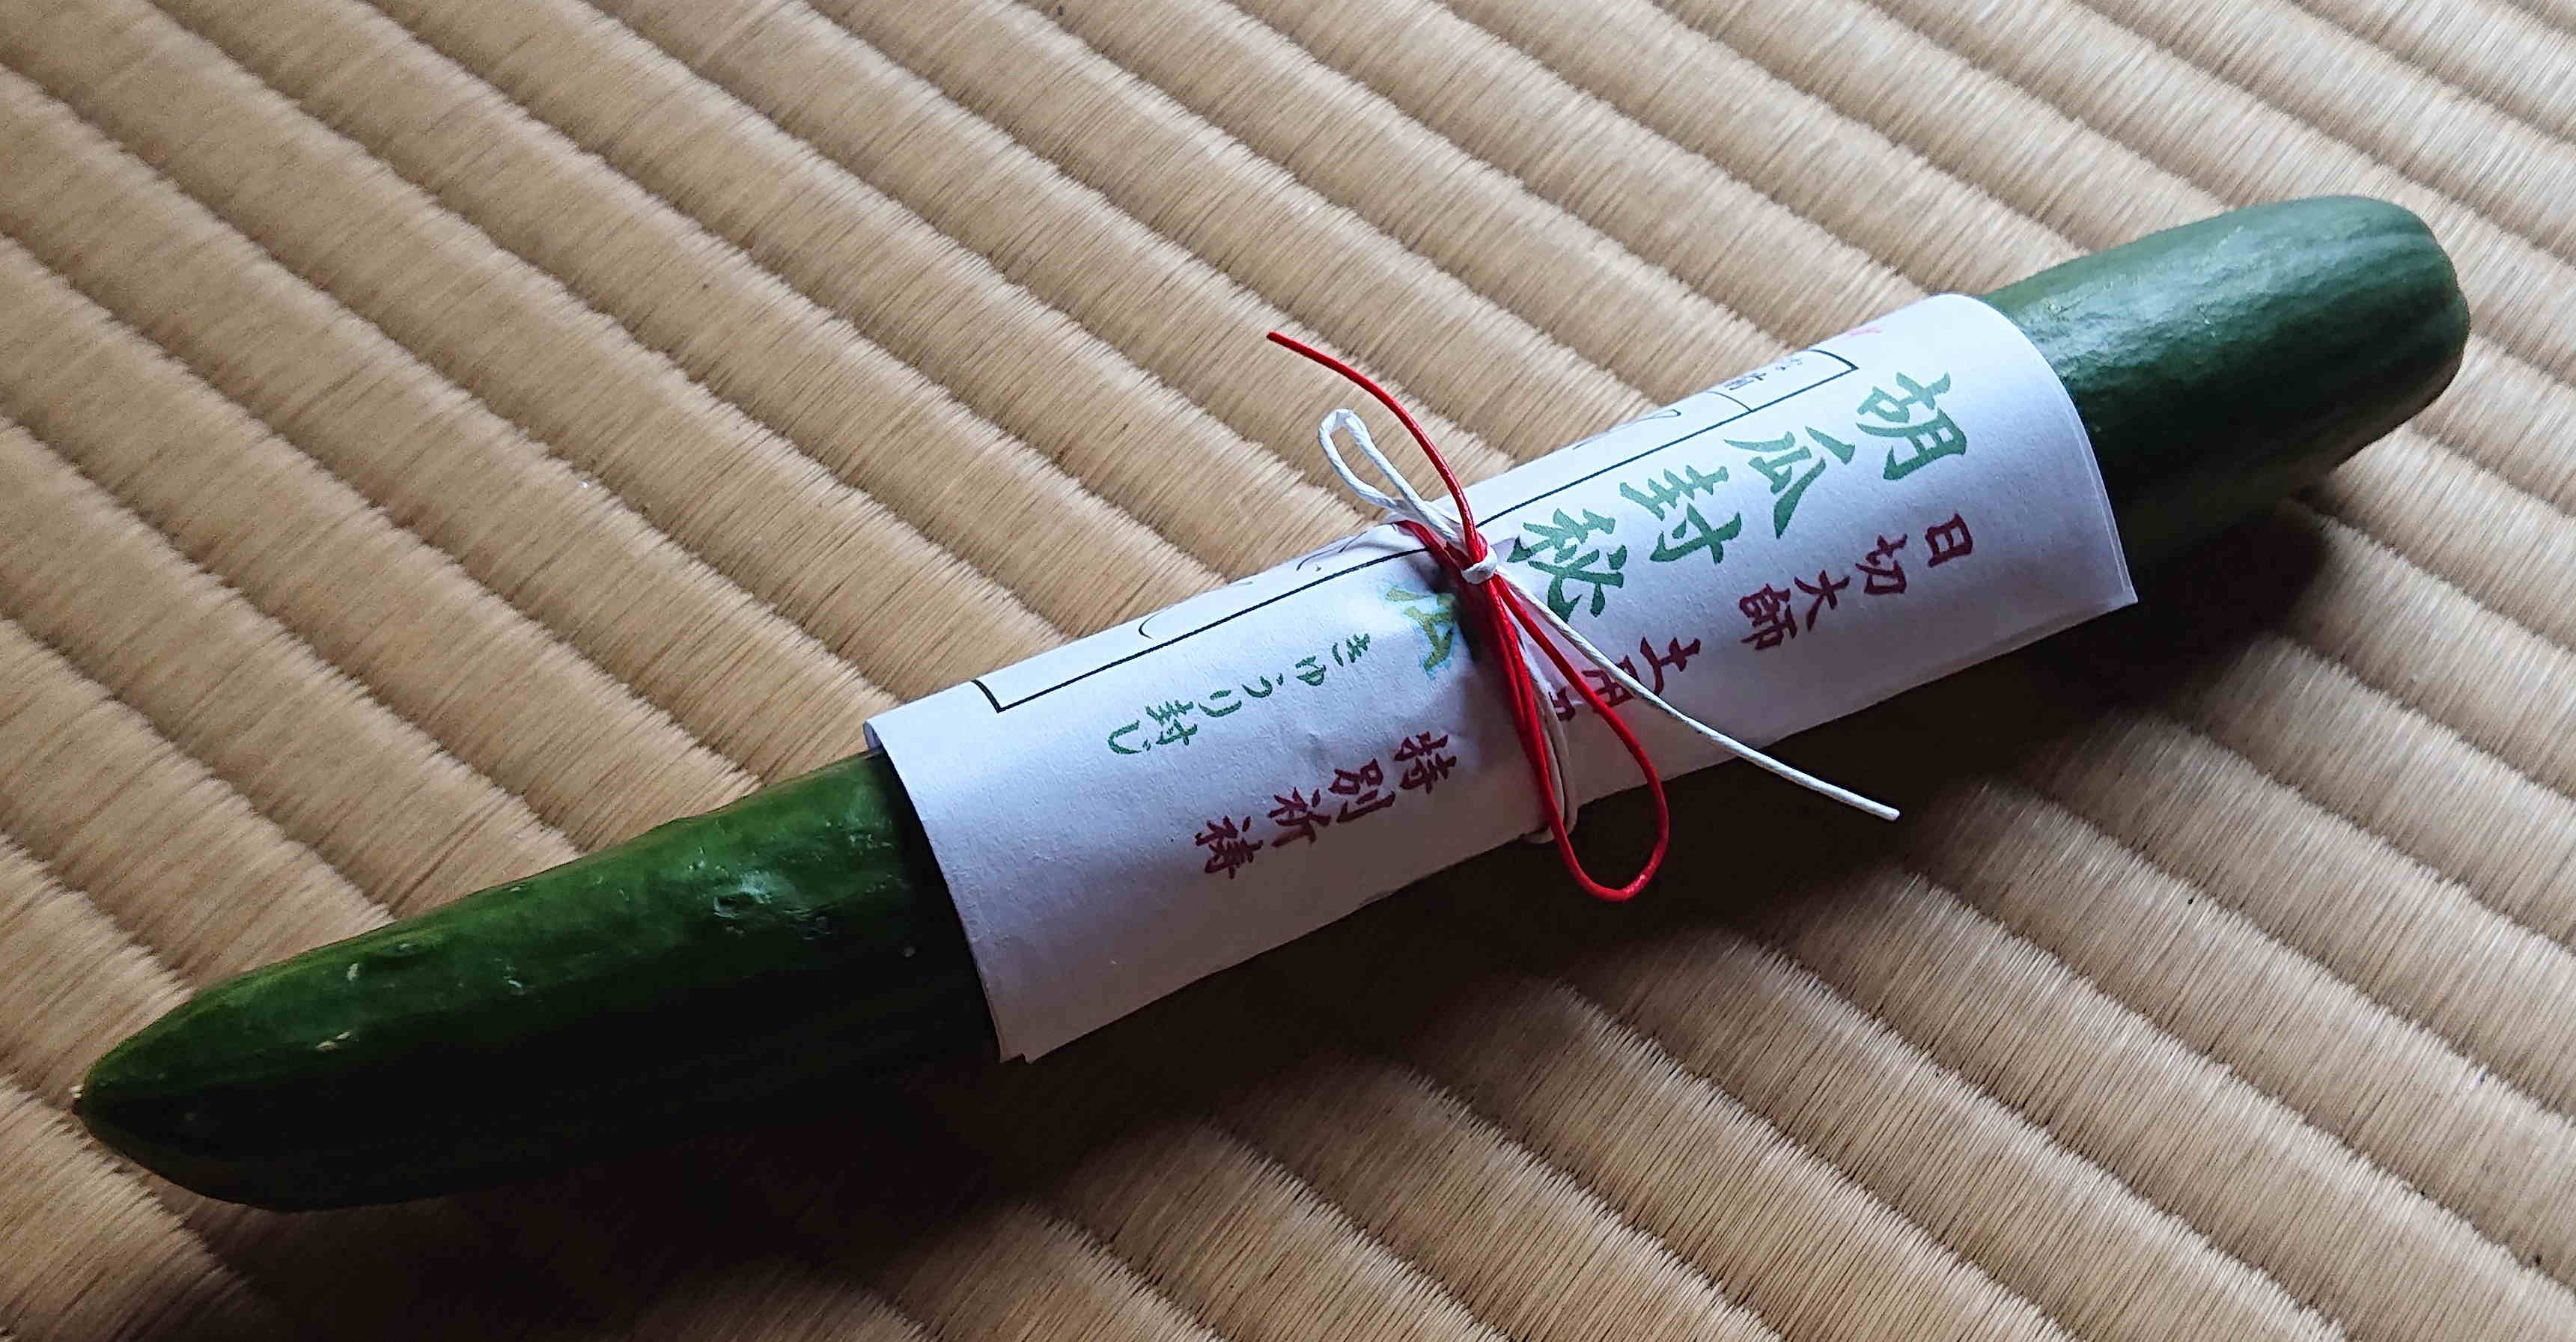 日切大師 土用
特別祈祷
胡瓜封秘
きゅうり封じ